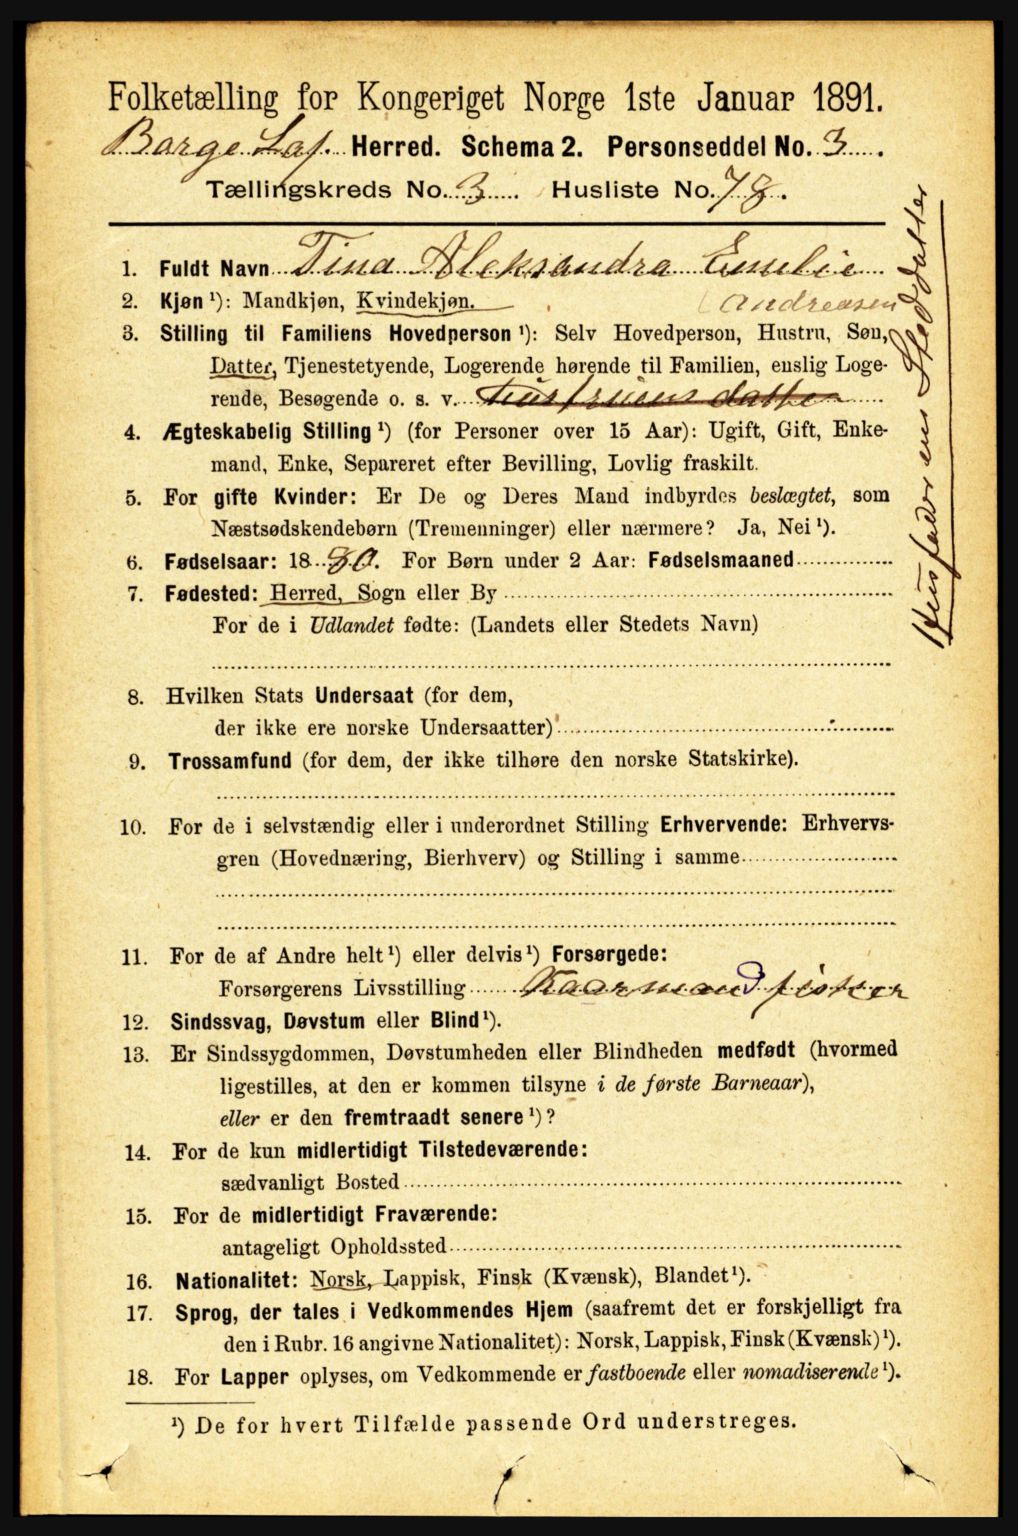 Folketælling for Kongeriget Norge 1ste Januar 1891.
Borge Lof. Herred. Schema 2. Personseddel No. 3.
Tællingskreds No. 3. Husliste No. 78.
1. Fuldt Navn Tina Aleksandra Emelie
2. Kjøn ¹): Mandkjøn, Kvindekjøn. (Andreasen
3. Stilling til Familiens Hovedperson ¹): Selv Hovedperson, Hustru, Søn,
Datter, Tjenestetyende, Logerende hørende til Familien, enslig Loge-
rende, Besøgende o. s. v. husfruens datter
4. Ægteskabelig Stilling ¹) (for Personer over 15 Aar): Ugift, Gift, Enke-
mand, Enke, Separeret efter Bevilling, Lovlig fraskilt.
5. For gifte Kvinder: Er De og Deres Mand indbyrdes beslægtet, som
Næstsødskendebørn (Tremenninger) eller nærmere? Ja, Nei ¹).
6. Fødselsaar: 1880. For Børn under 2 Aar: Fødselsmaaned
7. Fødested: Herred, Sogn eller By
For de i Udlandet fødte: (Landets eller Stedets Navn)
8. Hvilken Stats Undersaat (for dem,
der ikke ere norske Undersaatter)
9. Trossamfund (for dem, der ikke tilhøre den norske Statskirke).
10. For de i selvstændig eller i underordnet Stilling Erhvervende: Erhvervs-
gren (Hovednæring, Bierhverv) og Stilling i samme
11. For de af Andre helt ¹) eller delvis ¹) Forsørgede:
Forsørgerens Livsstilling Kaarmand fisker
12. Sindssvag, Døvstum eller Blind ¹).
13. Er Sindssygdommen, Døvstumheden eller Blindheden medfødt (hvormed
ligestilles, at den er kommen tilsyne i de første Barneaar),
eller er den fremtraadt senere ¹)?
14. For de kun midlertidigt Tilstedeværende:
sædvanligt Bosted
15. For de midlertidigt Fraværende:
antageligt Opholdssted
16. Nationalitet: Norsk, Lappisk, Finsk (Kvænsk), Blandet ¹).
17. Sprog, der tales i Vedkommendes Hjem (saafremt det er forskjelligt fra
den i Rubr. 16 angivne Nationalitet): Norsk, Lappisk, Finsk (Kvænsk) ¹).
18. For Lapper oplyses, om Vedkommende er fastboende eller nomadiserende ¹).
¹) De for hvert Tilfælde passende Ord understreges.
Husfaderens Steddatter